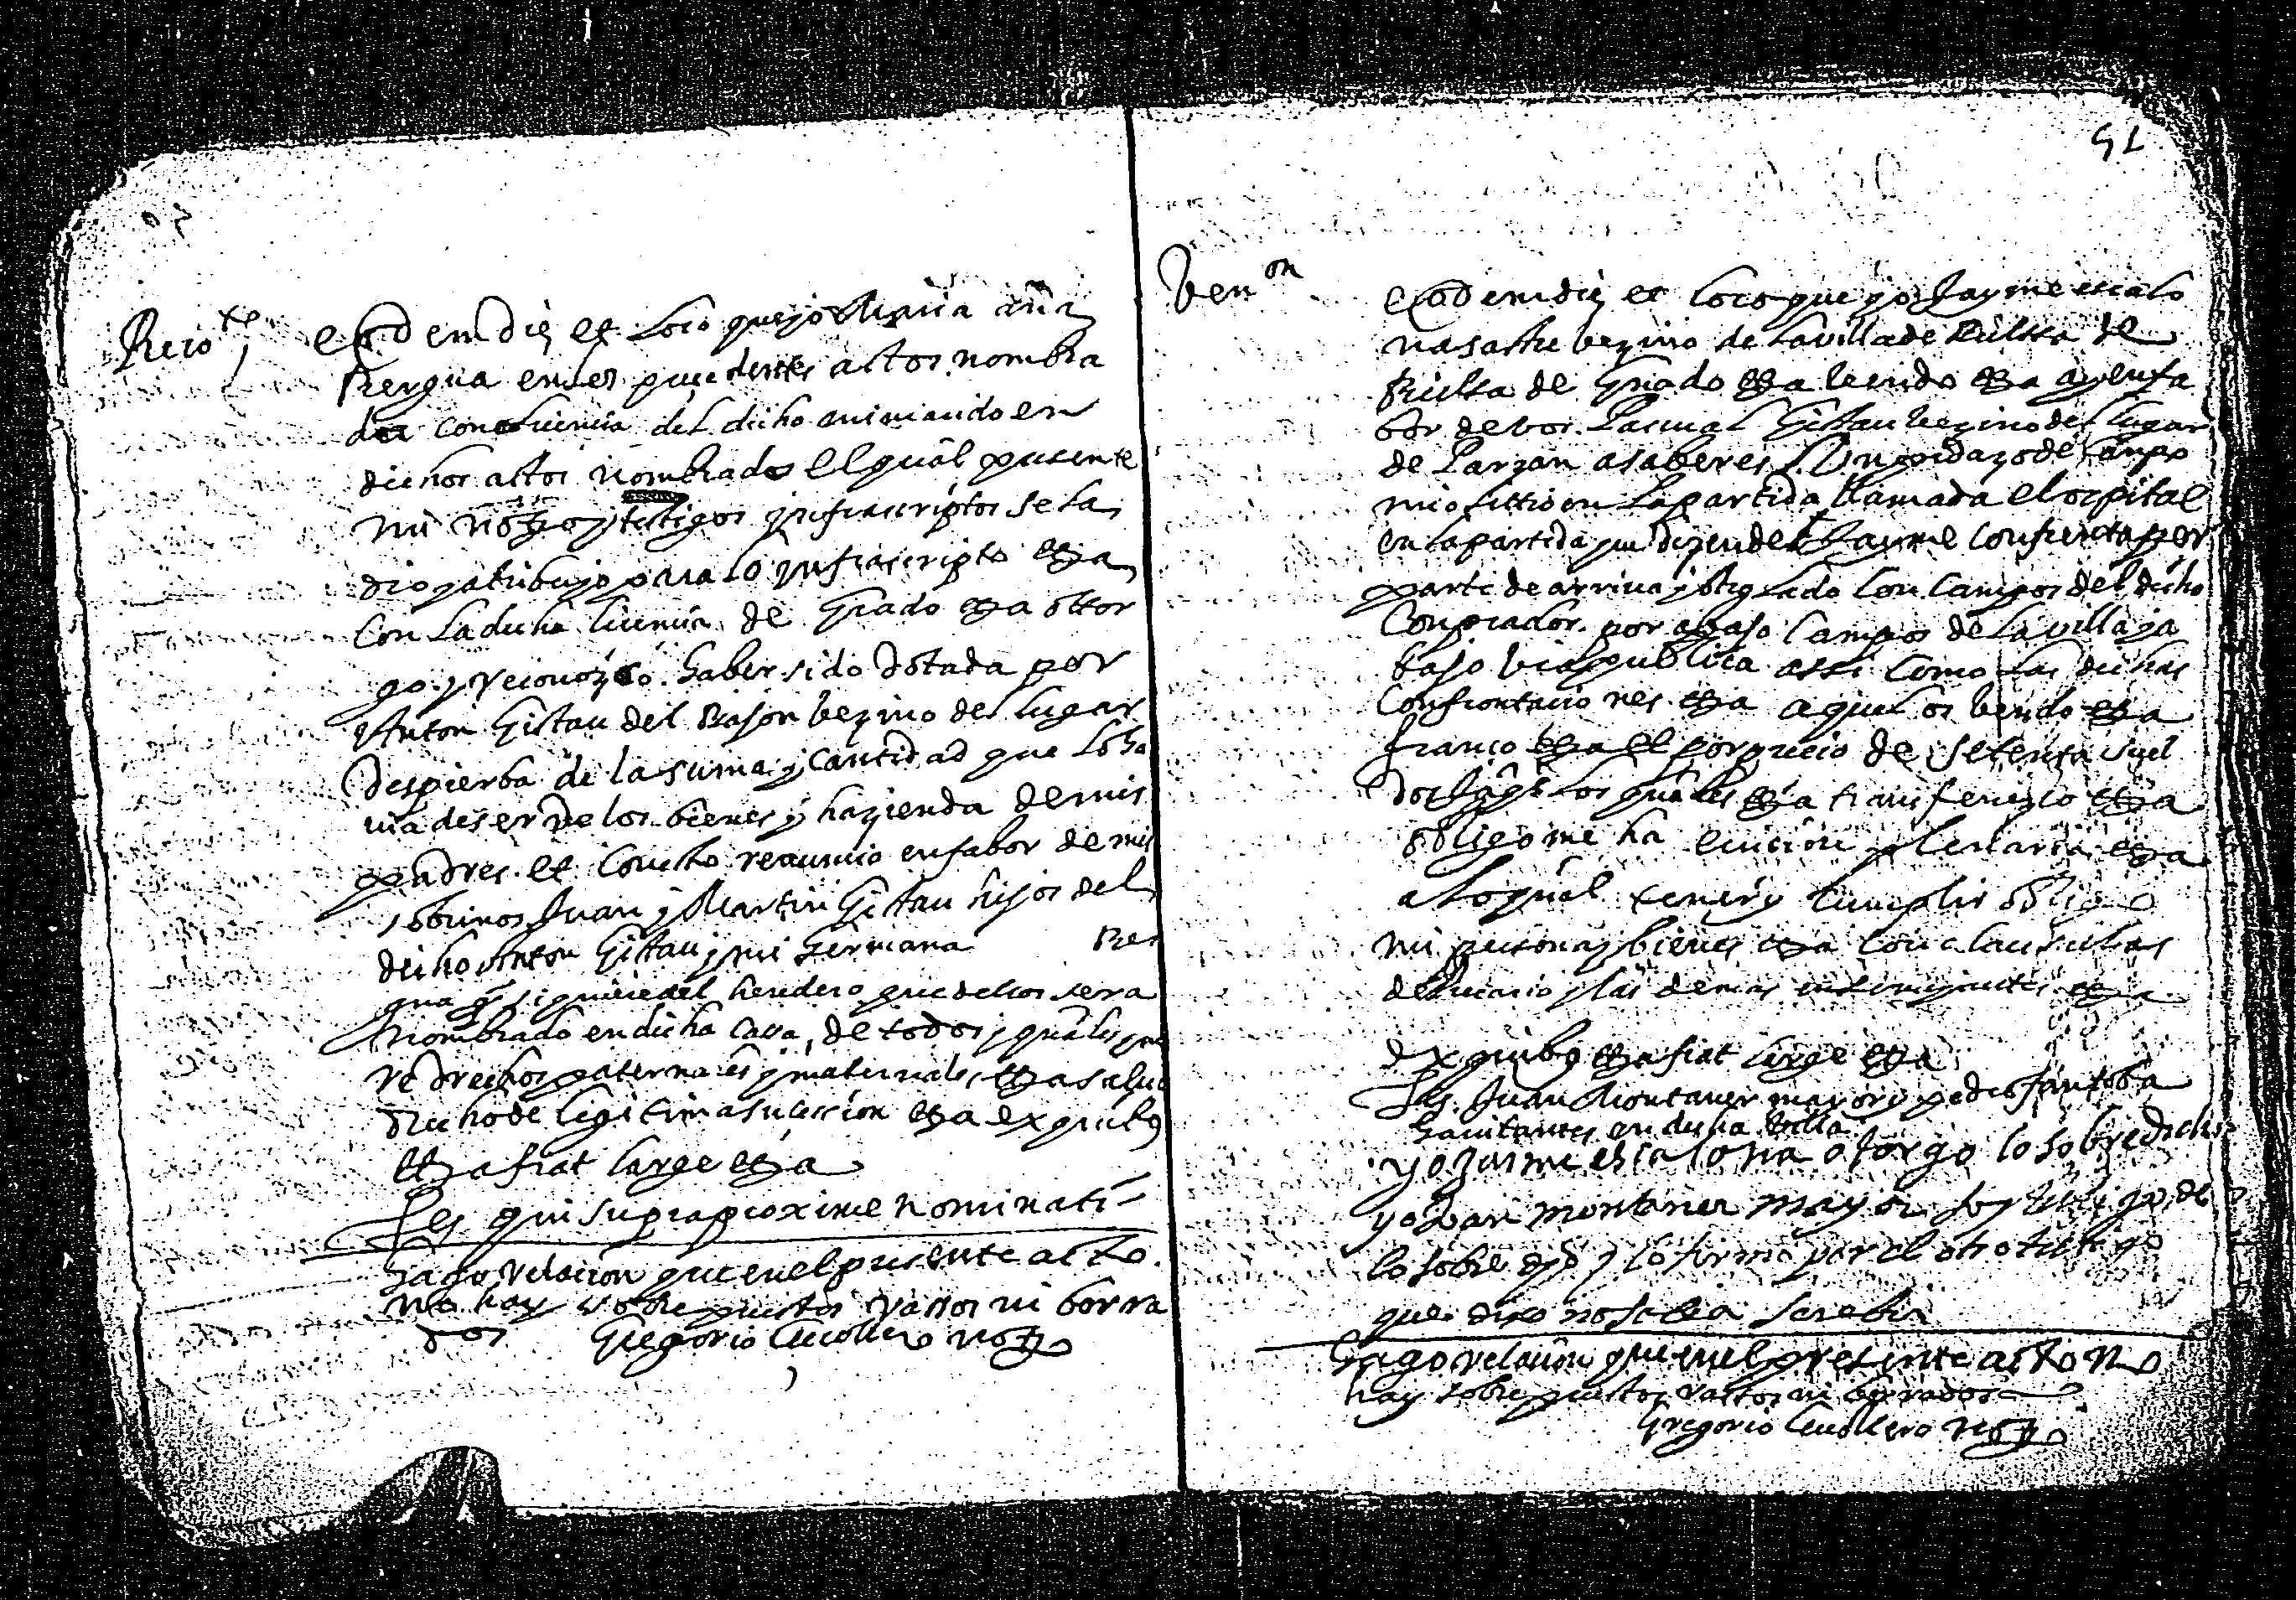 Reco
Eodem die et loco que yo Maria
Bergua en los precedentes actos nombra
da con licencia del dicho mi marido en
dichos actos nombrado el qual presente
mi noto y testigos infrascriptos se la
dio y atribuyo para lo infrascripto etza
con la dicha licencia de grado etza ottor
go y reconozco haber sido dotada por
Anton Gistau del Bason bezino del lugar
despierba de la suma y cantidad que lo ha
via de ser de los bienes y hazienda de mis
padres et con esto renuncio en fabor de mis
sobrinos Juan y Martin Gistau hijos del
dicho Anton Gistau y mi hermana Ber
gua o si quiere del heredero que dellos sera
nombrado en dicha casa, de todos y quales
re drechos paternales y maternales etza salvo
drecho de legitima sucession etza ex quibus
etza fiat large etza
Tes qui supra proxime nominati
Hago relacion que en el presente acto
no hay sobre puestos rassos ni borra
dos Gregorio noto
51
Ven on
Eodem die et loco que yo Jayme escalo
na sastre bezino de la villa de Bielsa de
Bielsa de grado etza bendo etza en fa
bor de vos Pascual Gistau bezino del lugar
de Parzan a saber es Un pedazo de campo
mio sittio en la partida llamada el ospital
en la partida que dizen del Jayme confrenta por
parte de arriva y otro lado con campos del dicho
Conprador por abaso campos de la villa ja
baso via publica assi como las dichas
Confrontaciones etza aquel os bendo etza
franco etza el por precio de setenta suel
dos jaqs los quales etza transferezco etza
obligome ha eviccion plenaria etza
a lo qual tener y cumplir obligo
mi persona y bienes etza con clausulas
de precario y las demas etza
ex quibus etza fiat large etza
Tes Juan Montaner mayor y pedro fantoba
havitantes en dicha villa
yo Jaime escalona otorgo lo sobredicho
yo Juan montaner mayor soy testigo de
lo sobre dho y lo firmo por el otro testigo
que dixo no sebia screbir
Hago relacion que en el presente acto no
hay sobre puestos rassos ni borrados
Gregorio noto